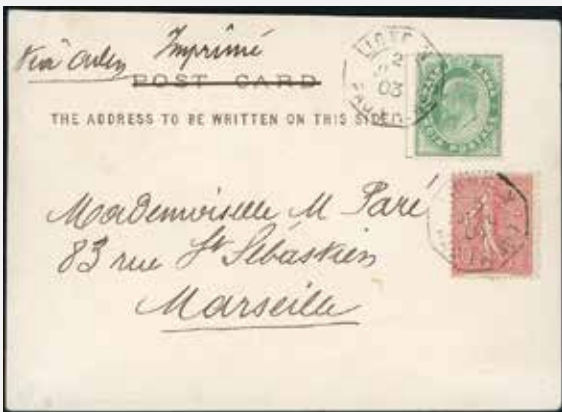 Via Aden Imprimé
POST CARD
THE ADDRESS TO BE WRITTEN ON THIS SIDE
LIGNE
2
03
Mademoiselle M Paré
83 rue St Sébastien
Marseille